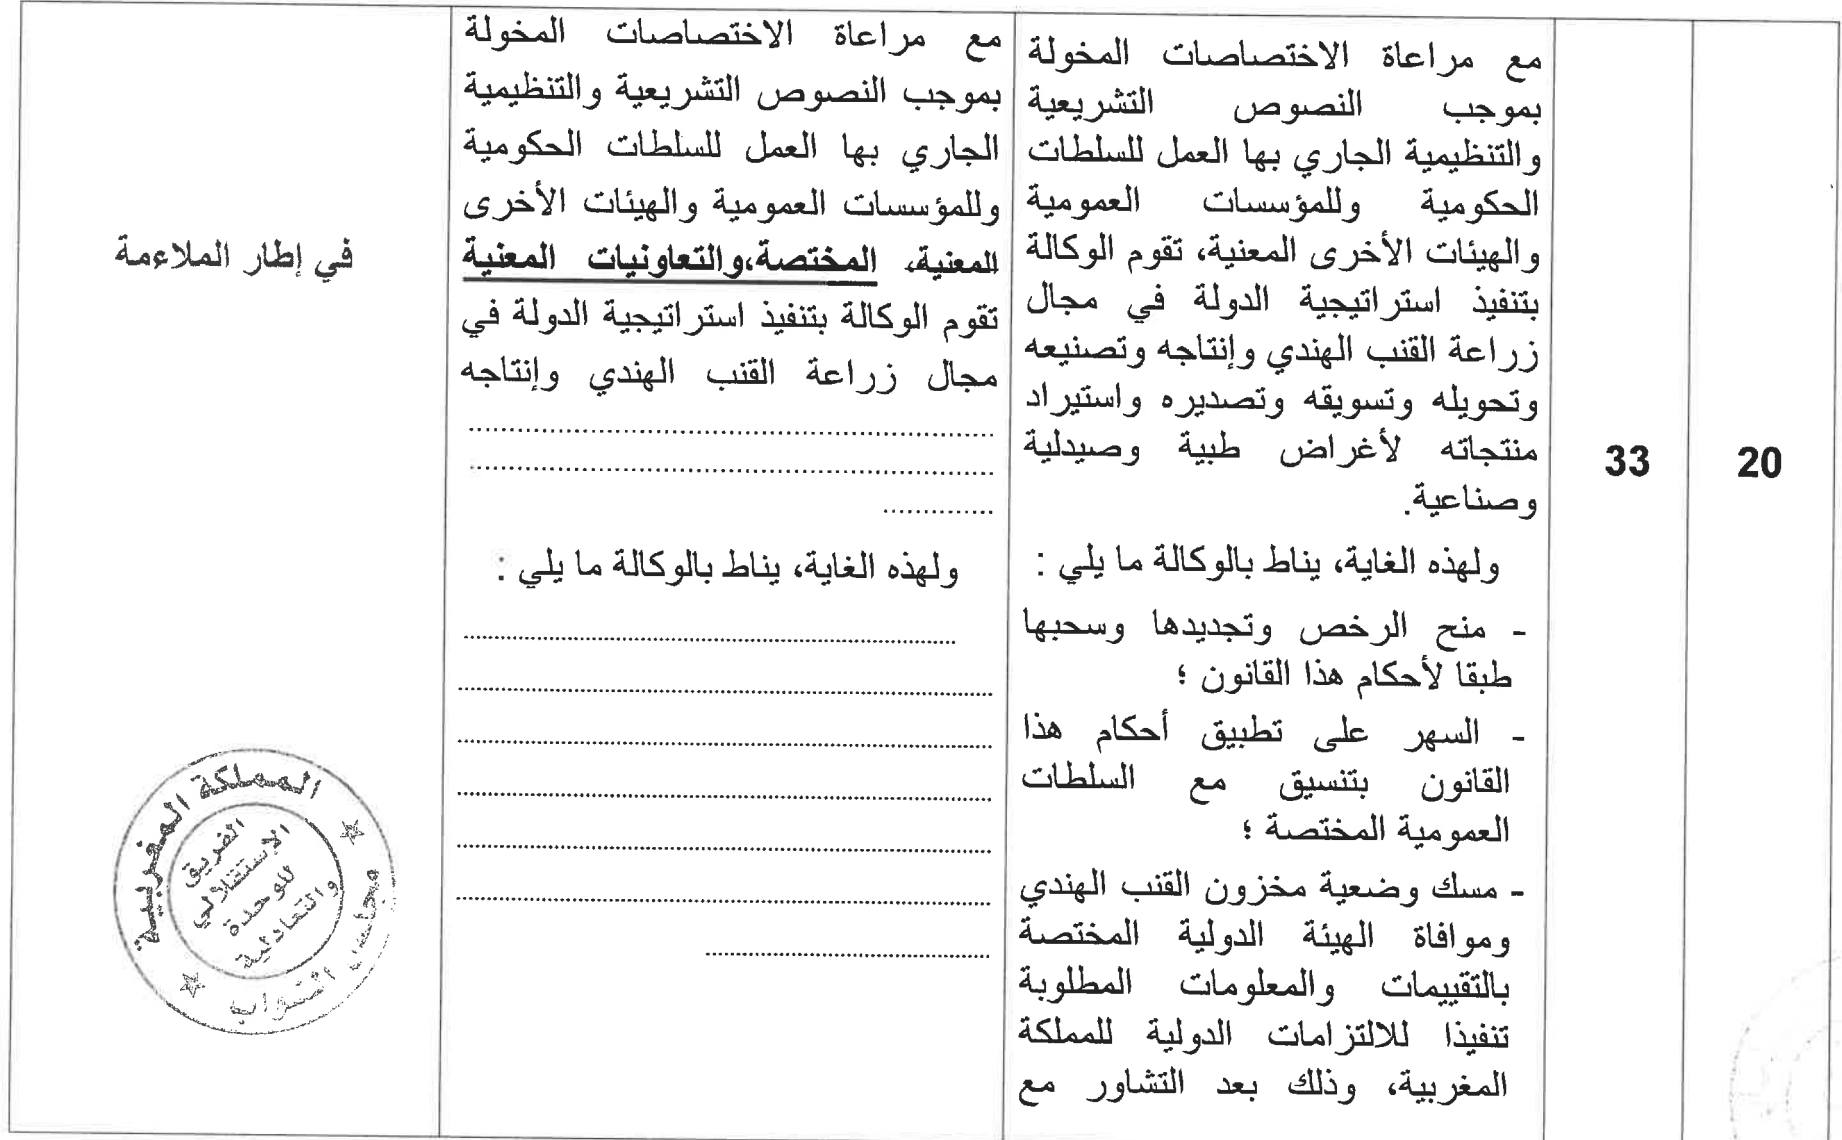 20
33
مع مراعاة الاختصاصات المخولة
بموجب النصوص التشريعية
والتنظيمية الجاري بها العمل للسلطات
الحكومية وللمؤسسات العمومية
والهيئات الأخرى المعنية، تقوم الوكالة
بتنفيذ استراتيجية الدولة في مجال
زراعة القنب الهندي وإنتاجه وتصنيعه
وتحويله وتسويقه وتصديره واستيراد
منتجاته لأغراض طبية وصيدلية
وصناعية.
ولهذه الغاية، يناط بالوكالة ما يلي :
- منح الرخص وتجديدها وسحبها
طبقا لأحكام هذا القانون ؛
- السهر على تطبيق أحكام هذا
القانون بتنسيق مع السلطات
العمومية المختصة ؛
- مسك وضعية مخزون القنب الهندي
وموافاة الهيئة الدولية المختصة
بالتقييمات والمعلومات المطلوبة
تنفيذا للالتزامات الدولية للمملكة
المغربية، وذلك بعد التشاور مع
مع مراعاة الاختصاصات المخولة
بموجب النصوص التشريعية والتنظيمية
الجاري بها العمل للسلطات الحكومية
وللمؤسسات العمومية والهيئات الأخرى
المعنية، المختصة،والتعاونيات المعنية
تقوم الوكالة بتنفيذ استراتيجية الدولة في
مجال زراعة القنب الهندي وإنتاجه
..........
..........
..........
ولهذه الغاية، يناط بالوكالة ما يلي :
..........
..........
..........
..........
..........
..........
..........
في إطار الملاءمة
المملكة المغربية
مجلس النواب
الفريق
الإستقلالي
للوحدة
والتعادلية